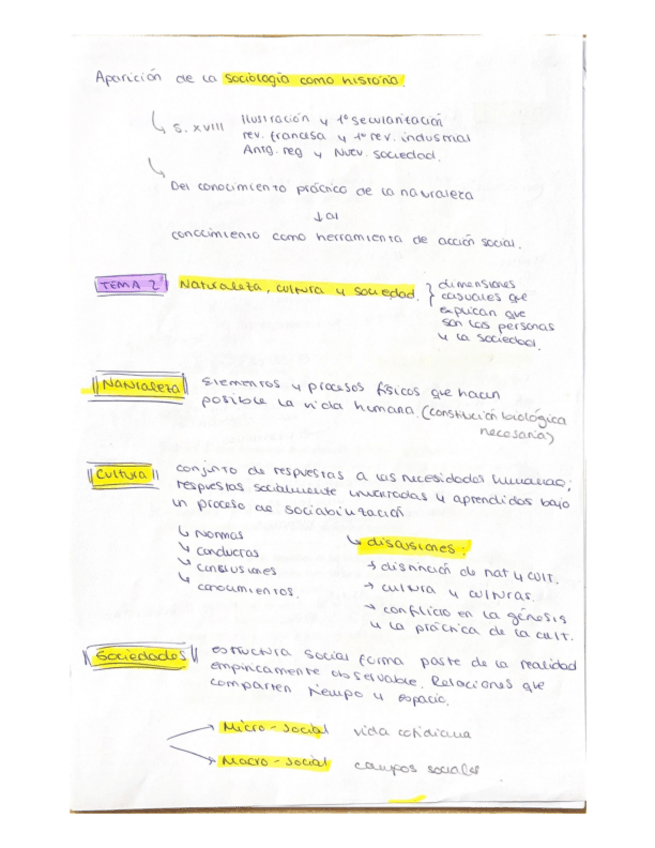 Aparición de la sociología como historia.
↳ S. XVIII Ilustración y 1º secularitación
rev. francesa y 1º rev. industrial
Antg. reg y Nuev. sociedad.
↳
Del conocimiento práctico de la naturaleza
↓ al
conocimiento como herramienta de acción social.
TEMA 2º Naturaleta, cultura y sociedad. } dimensiones
casuales que
explican que
son las personas
y la sociedad.
Naturaleza Elementos y procesos físicos que hacen
posible la vida humana. (constitución biológica
necesaria)
Cultura conjunto de respuestas a las necesidades humanas;
respuestas socialmente y aprendidas bajo
un proceso de
↳ Normas
↳ conductas
↳ conclusiones
↳ conocimientos.
↳ discusiones:
→ distinción de nat y cult.
→ cultura y culturas.
→ conflicto en la génesis
y la práctica de la cult.
Sociedades estructura social forma parte de la realidad
empíricamente observable. Relaciones que
comparten tiempo y espacio.
→ Micro-social vida cotidiana
→ Macro-social campos sociales